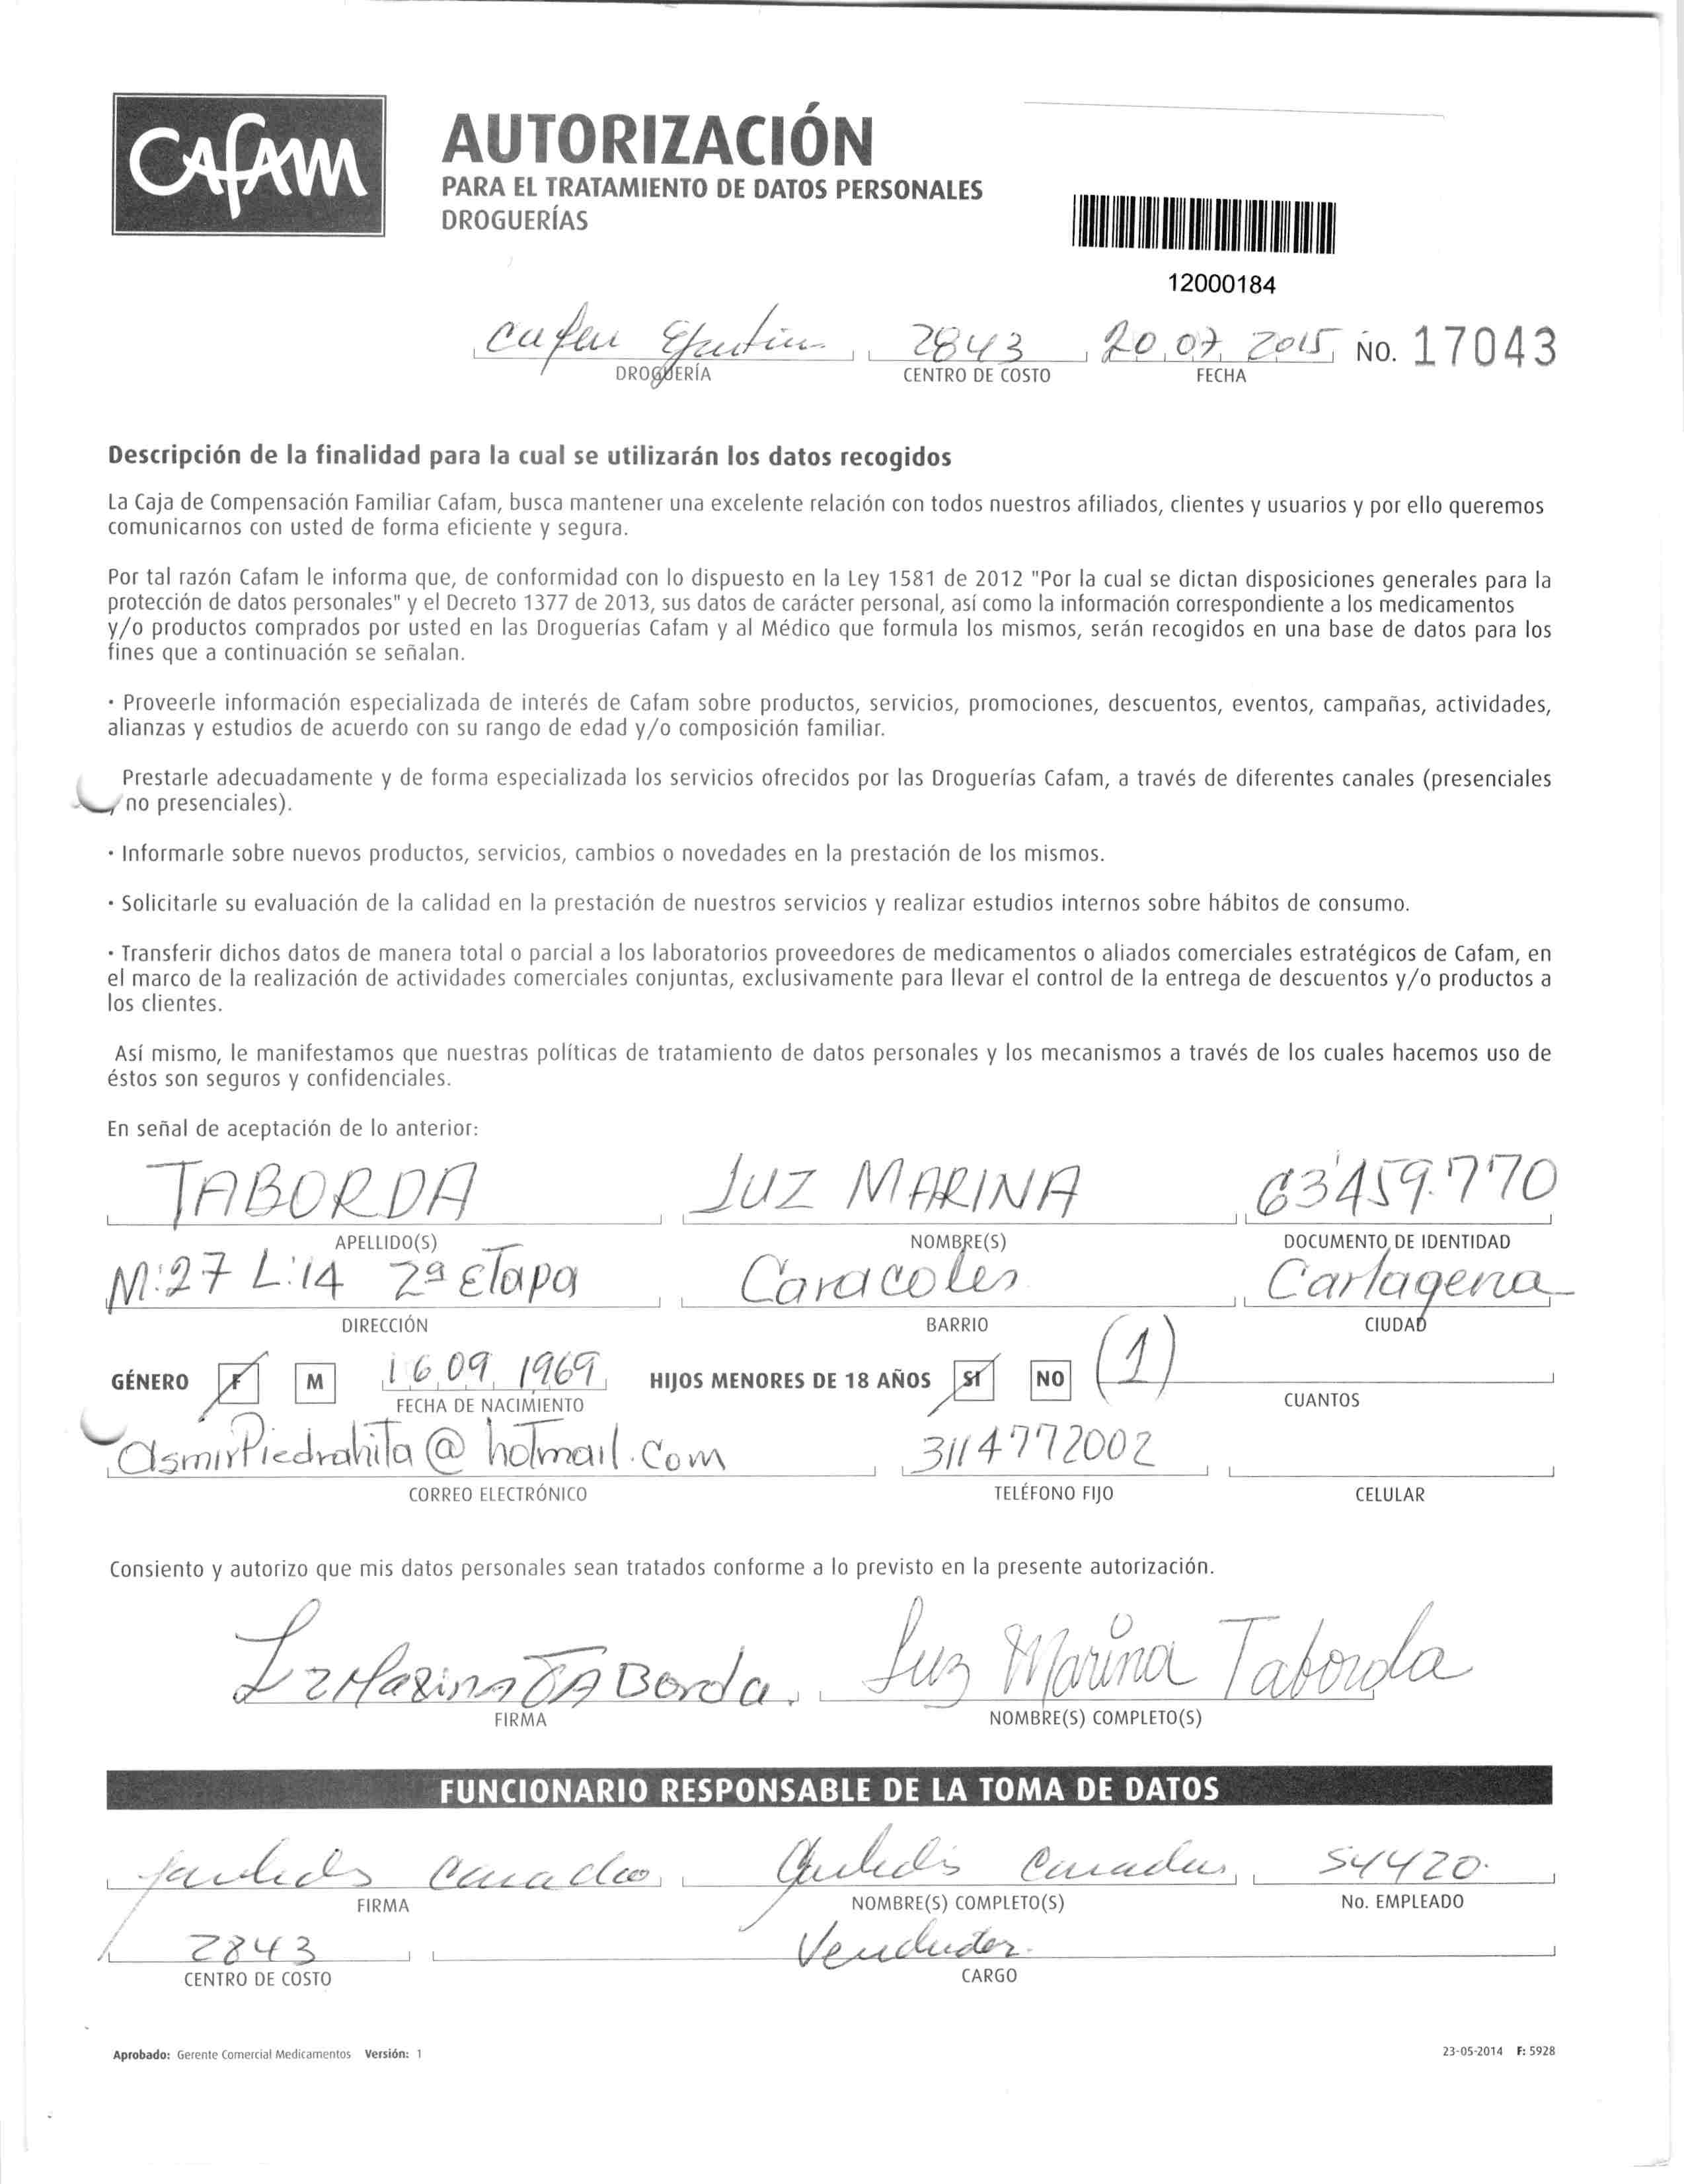 CAFAM
AUTORIZACIÓN
PARA EL TRATAMIENTO DE DATOS PERSONALES
DROGUERÍAS
12000184
2843 20 07 2015 NO. 17043
DROGUERÍA CENTRO DE COSTO FECHA
Descripción de la finalidad para la cual se utilizarán los datos recogidos
La Caja de Compensación Familiar Cafam, busca mantener una excelente relación con todos nuestros afiliados, clientes y usuarios y por ello queremos
comunicarnos con usted de forma eficiente y segura.
Por tal razón Cafam le informa que, de conformidad con lo dispuesto en la Ley 1581 de 2012 "Por la cual se dictan disposiciones generales para la
protección de datos personales" y el Decreto 1377 de 2013, sus datos de carácter personal, así como la información correspondiente a los medicamentos
y/o productos comprados por usted en las Droguerías Cafam y al Médico que formula los mismos, serán recogidos en una base de datos para los
fines que a continuación se señalan.
· Proveerle información especializada de interés de Cafam sobre productos, servicios, promociones, descuentos, eventos, campañas, actividades,
alianzas y estudios de acuerdo con su rango de edad y/o composición familiar.
Prestarle adecuadamente y de forma especializada los servicios ofrecidos por las Droguerías Cafam, a través de diferentes canales (presenciales
no presenciales).
· Informarle sobre nuevos productos, servicios, cambios o novedades en la prestación de los mismos.
· Solicitarle su evaluación de la calidad en la prestación de nuestros servicios y realizar estudios internos sobre hábitos de consumo.
· Transferir dichos datos de manera total o parcial a los laboratorios proveedores de medicamentos o aliados comerciales estratégicos de Cafam, en
el marco de la realización de actividades comerciales conjuntas, exclusivamente para llevar el control de la entrega de descuentos y/o productos a
los clientes.
Así mismo, le manifestamos que nuestras políticas de tratamiento de datos personales y los mecanismos a través de los cuales hacemos uso de
éstos son seguros y confidenciales.
En señal de aceptación de lo anterior:
TABORDA LUZ MARINA 63'459.770
APELLIDO(S) NOMBRE(S) DOCUMENTO DE IDENTIDAD
M:27 L:14 2ª Etapa Caracoles Cartagena
DIRECCIÓN BARRIO CIUDAD
GÉNERO F M 16 09 1969 HIJOS MENORES DE 18 AÑOS SI NO (1)
FECHA DE NACIMIENTO CUANTOS
asmirPiedrahita@hotmail.com 3114772002
CORREO ELECTRÓNICO TELÉFONO FIJO CELULAR
Consiento y autorizo que mis datos personales sean tratados conforme a lo previsto en la presente autorización.
Lz Marina TABorda. Luz Marina Taborda
FIRMA NOMBRE(S) COMPLETO(S)
FUNCIONARIO RESPONSABLE DE LA TOMA DE DATOS
54420.
FIRMA NOMBRE(S) COMPLETO(S) No. EMPLEADO
2843 Vendedor.
CENTRO DE COSTO CARGO
Aprobado: Gerente Comercial Medicamentos Versión: 1 23-05-2014 F: 5928